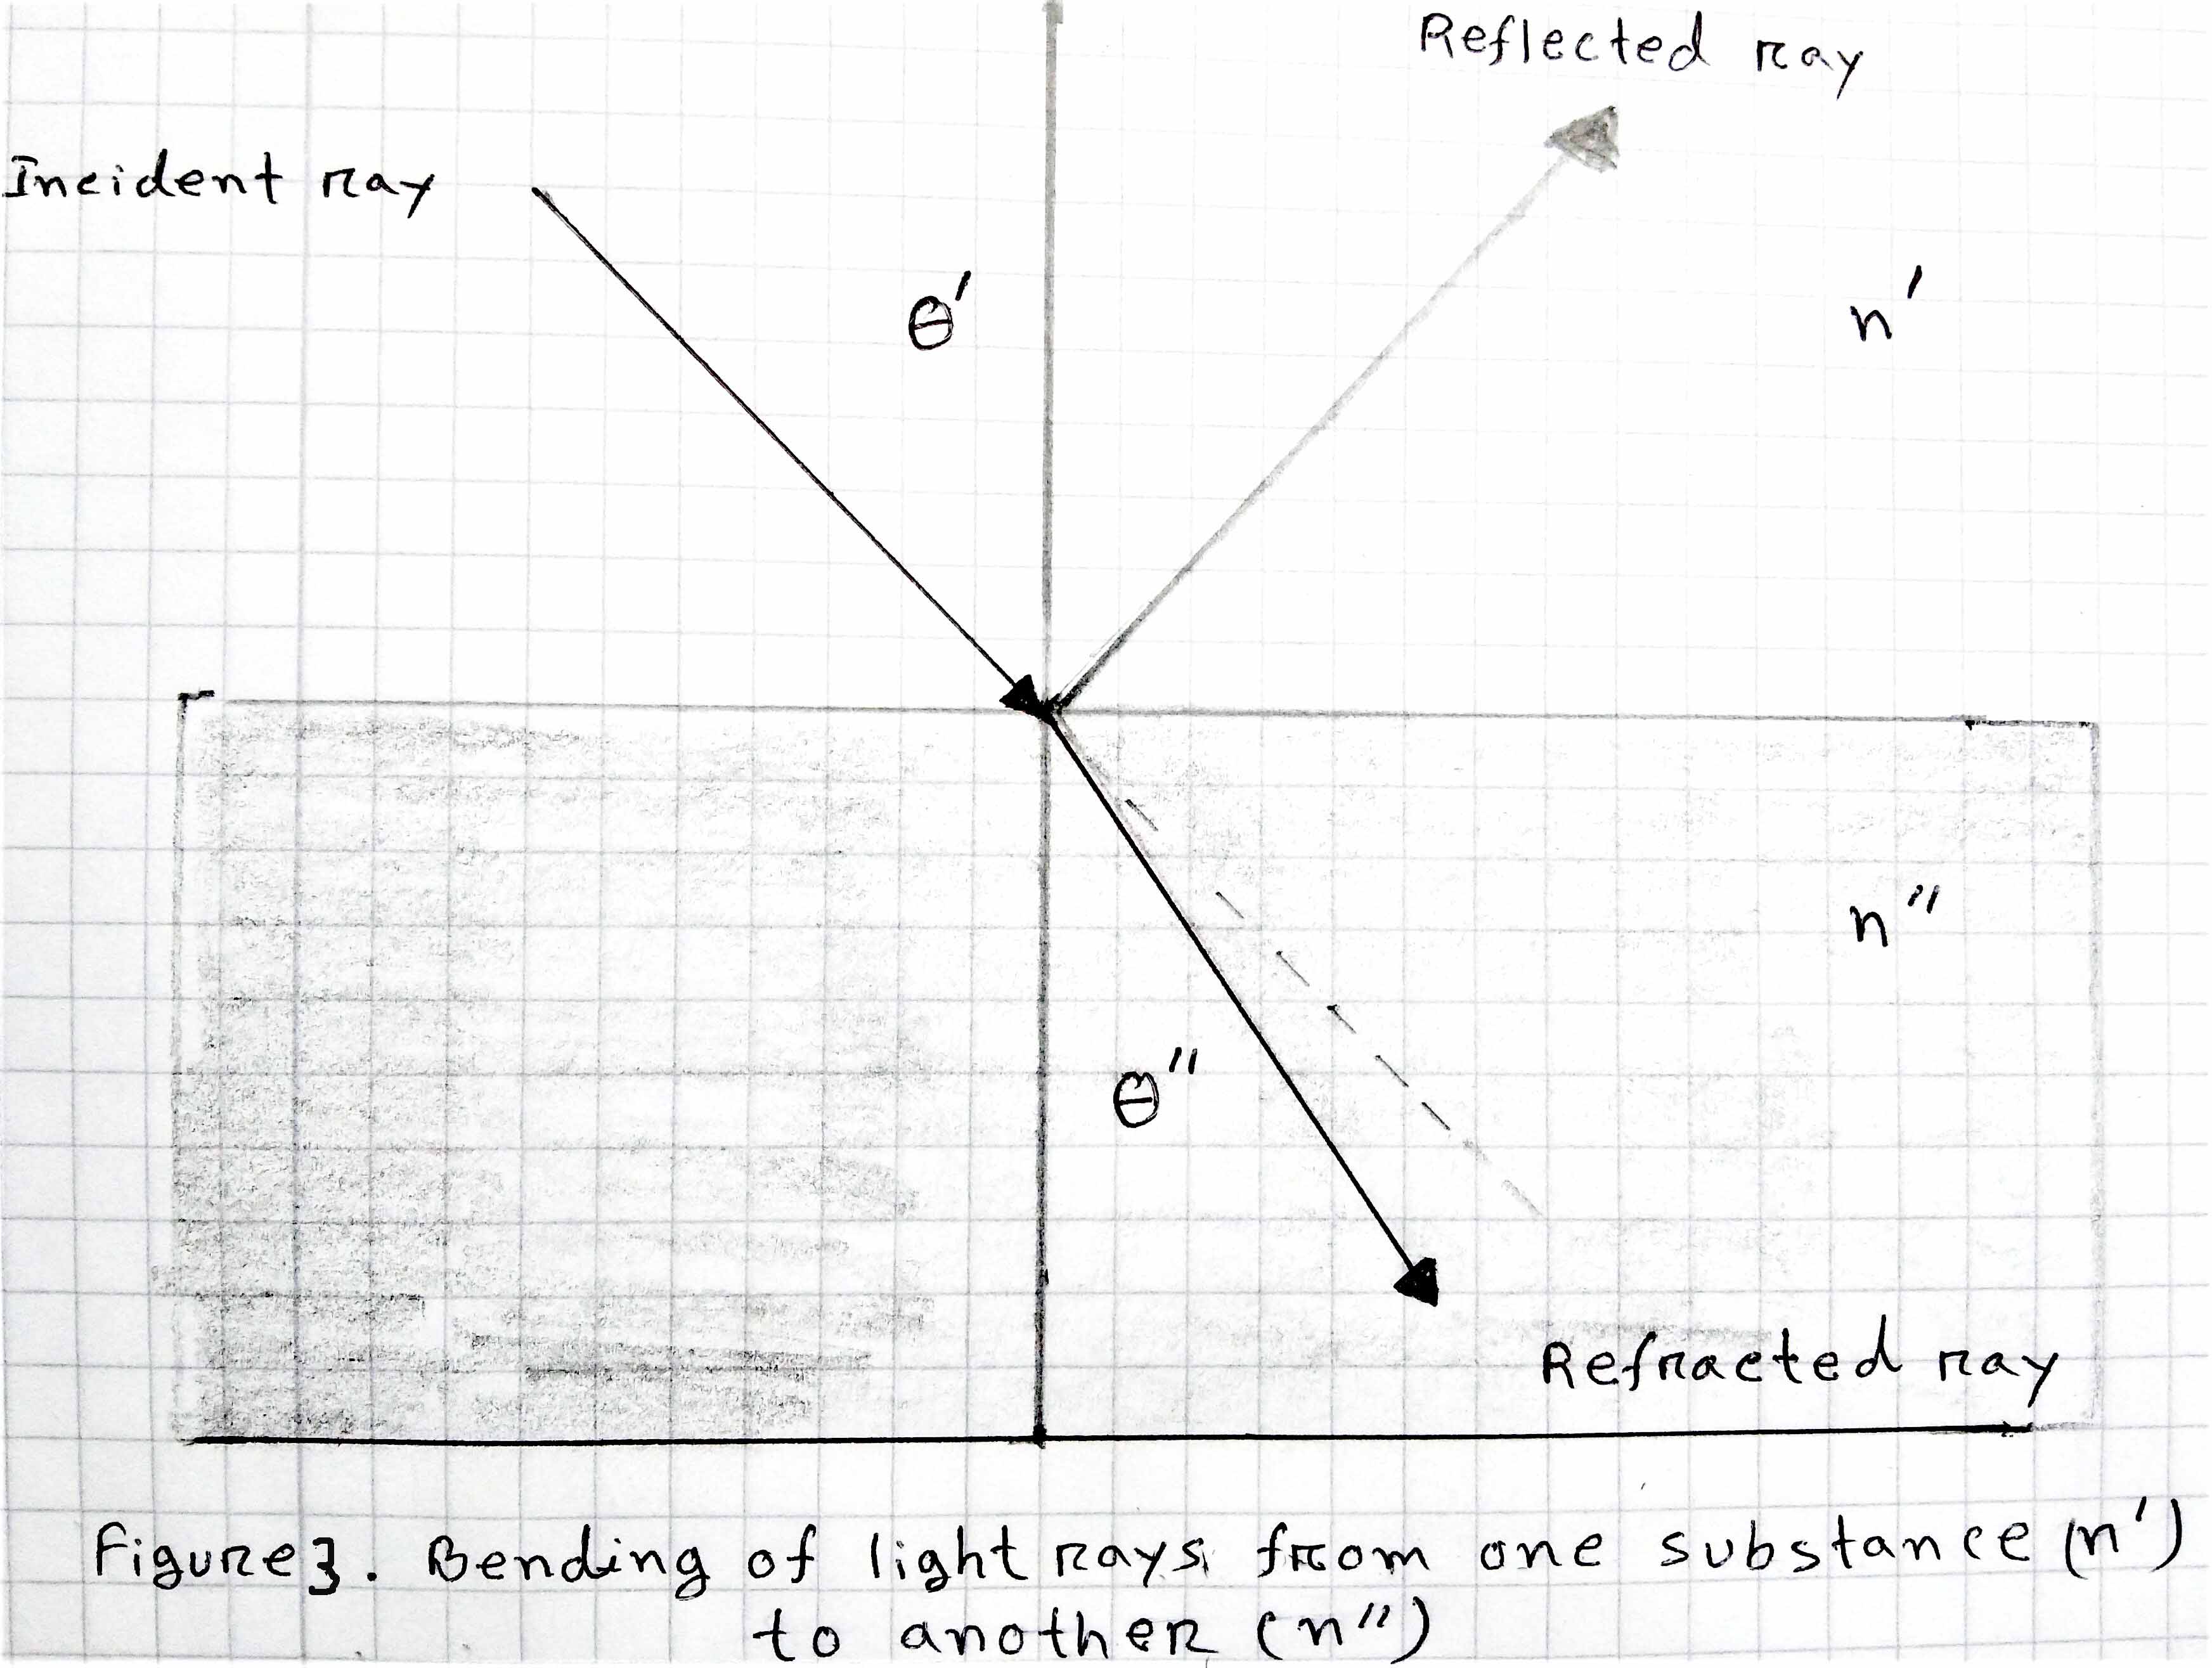 Reflected ray
Incident ray
θ'
n'
n"
θ"
Refracted ray
Figure 3. Bending of light rays from one substance (n')
to another (n")